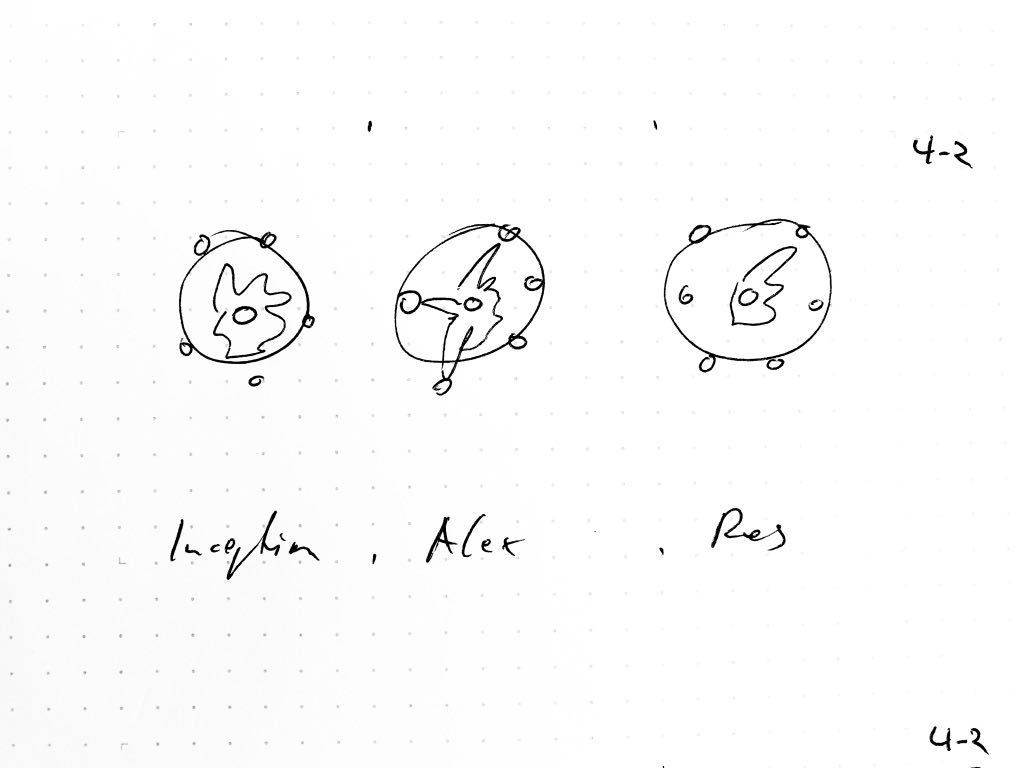 4-2
Inception, Alex, Res
4-2